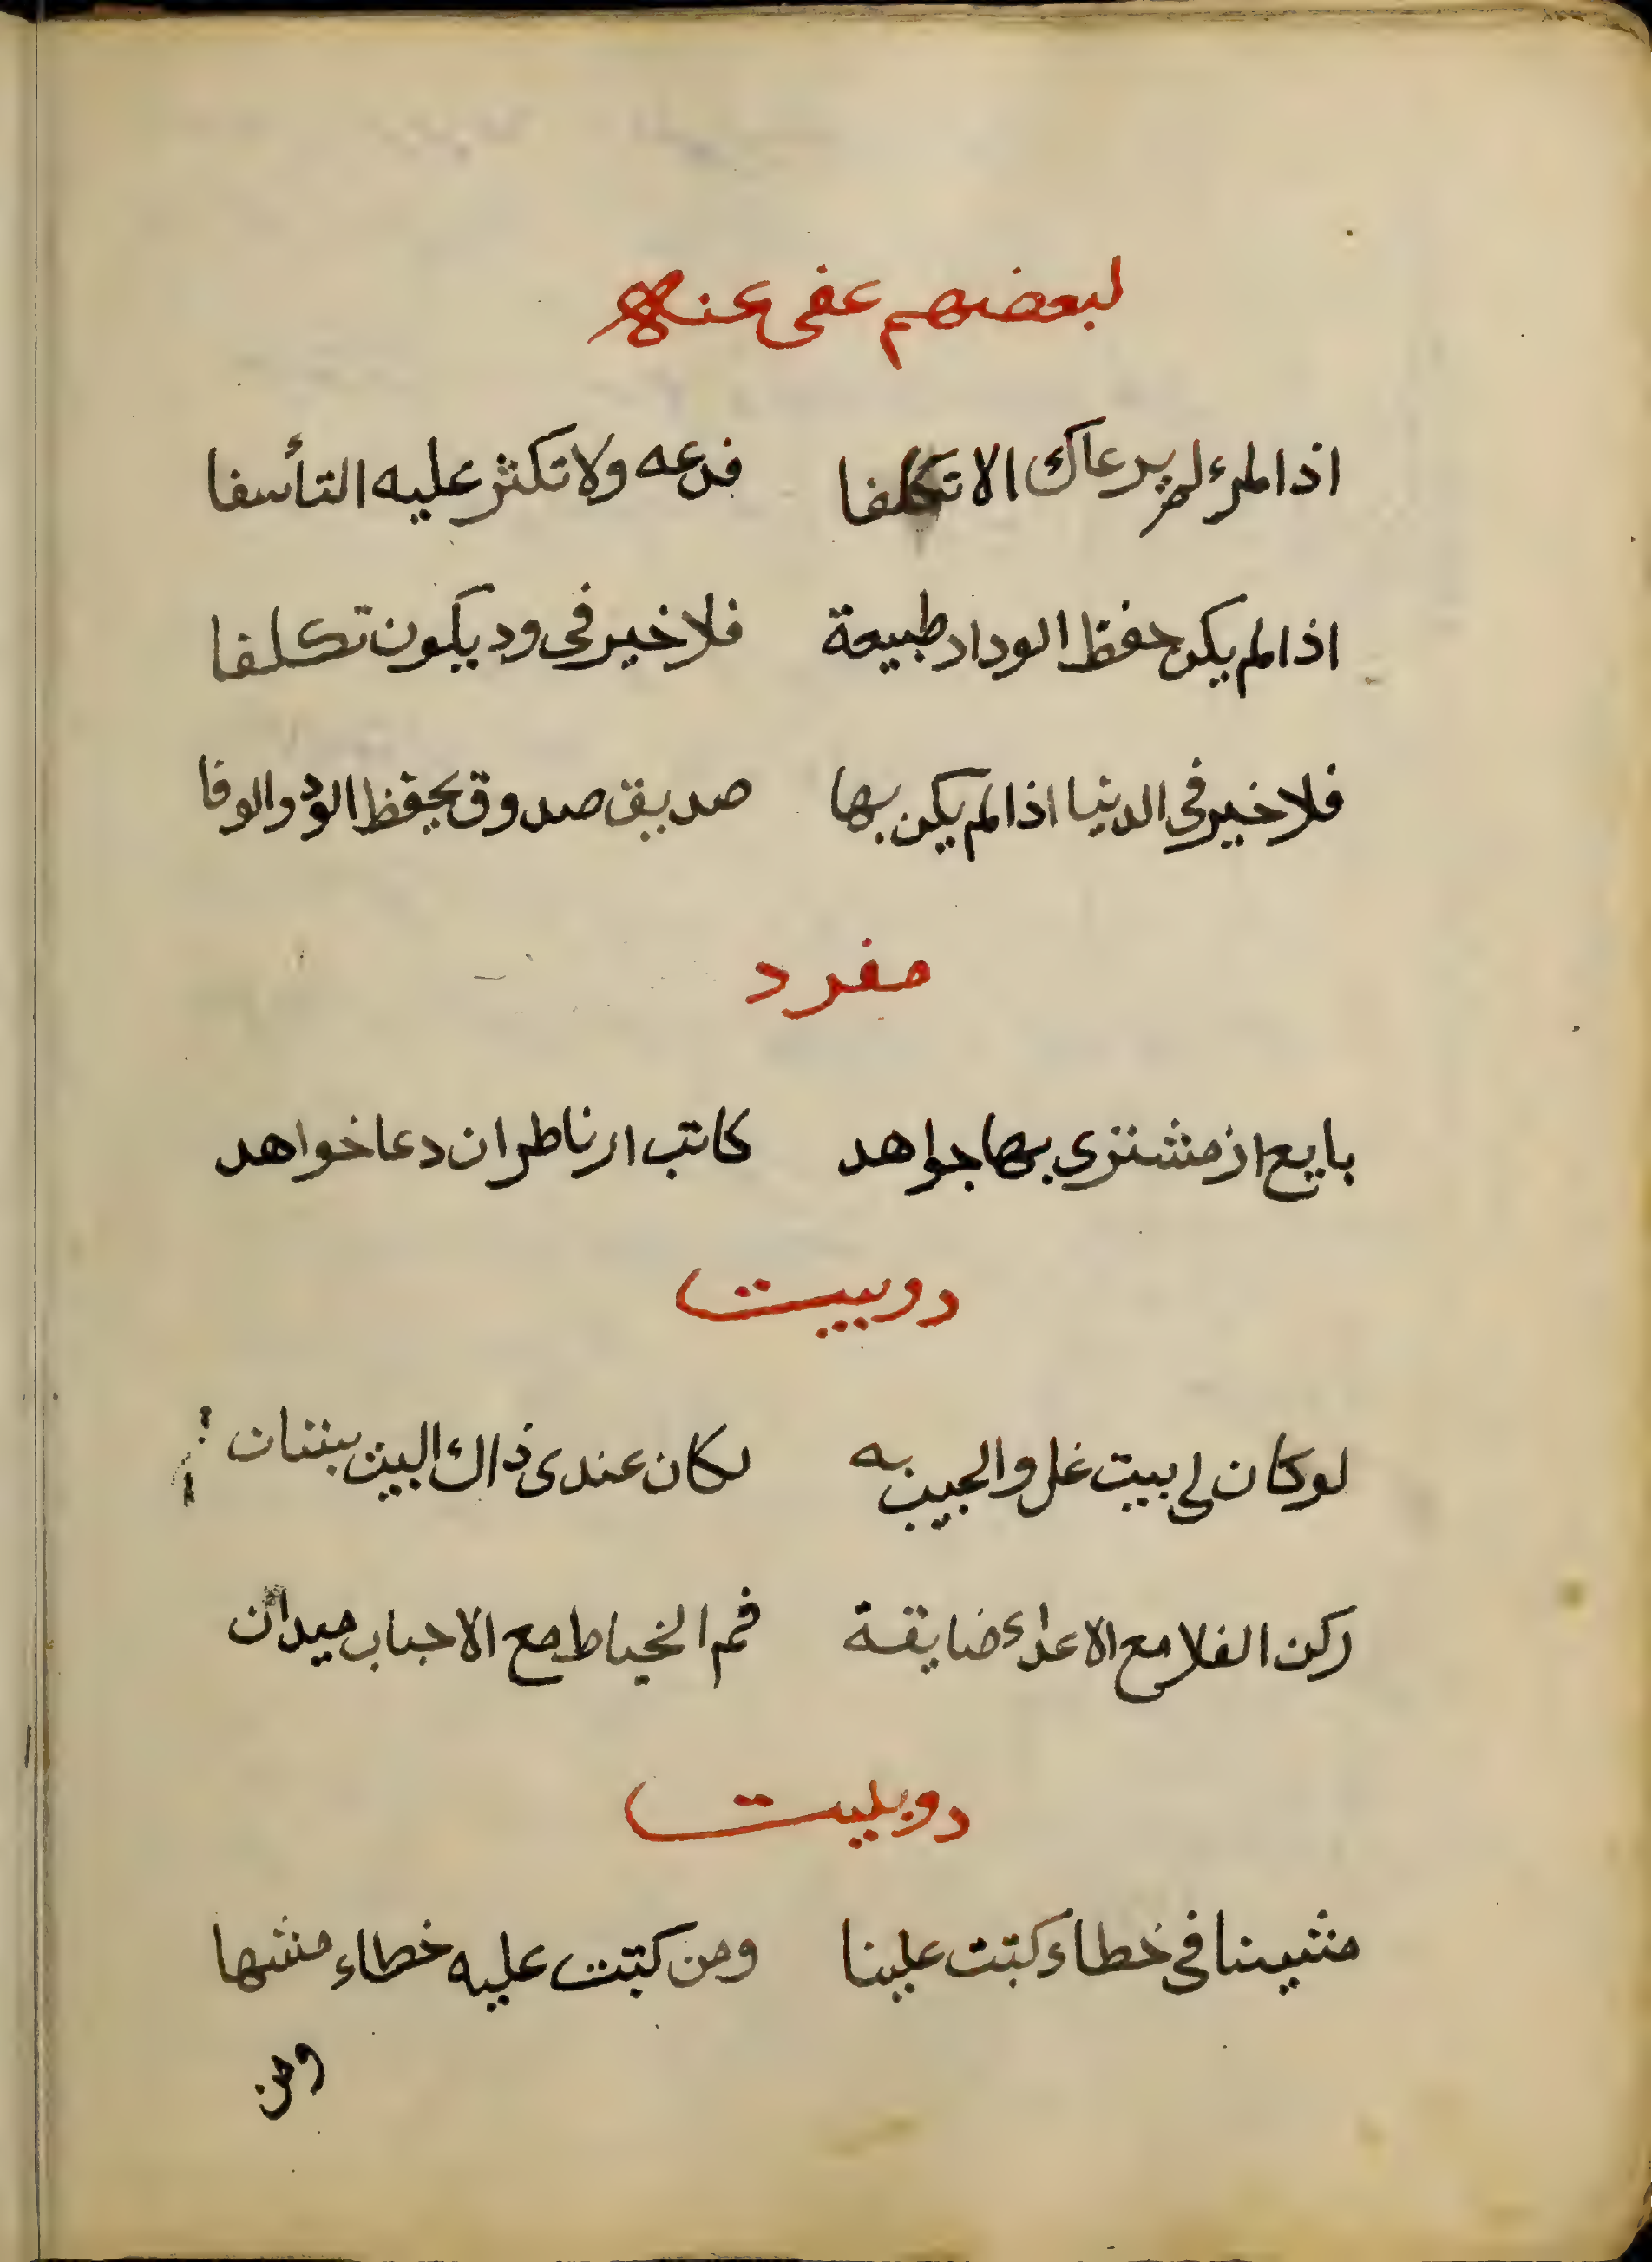 لبعضهم عفى عنهم
اذا المرء لم يرعاك الا تكلفا فدعه ولا تكثر عليه التأسفا
اذا لم يكن حفظ الوداد طبيعة فلا خير فى ود يكون تكلفا
فلا خير فى الدنيا اذا لم يكن بها صديق صدوق يحفظ الود والوفا
مفرد
بايع از مشترى بها جواهد كاتب ار ناطران دعا خواهد
دوبيت
لو كان لى بيت غل والحبيب به لكان عندى ذاك البيت بستان
ركن الفلا مع الاعداء ضايقة فم الخياط مع الاحباب ميدان
دوبيت
مشيينا فى خطاء كتبت علينا ومن كتبت عليه خطاء مشها
ومن